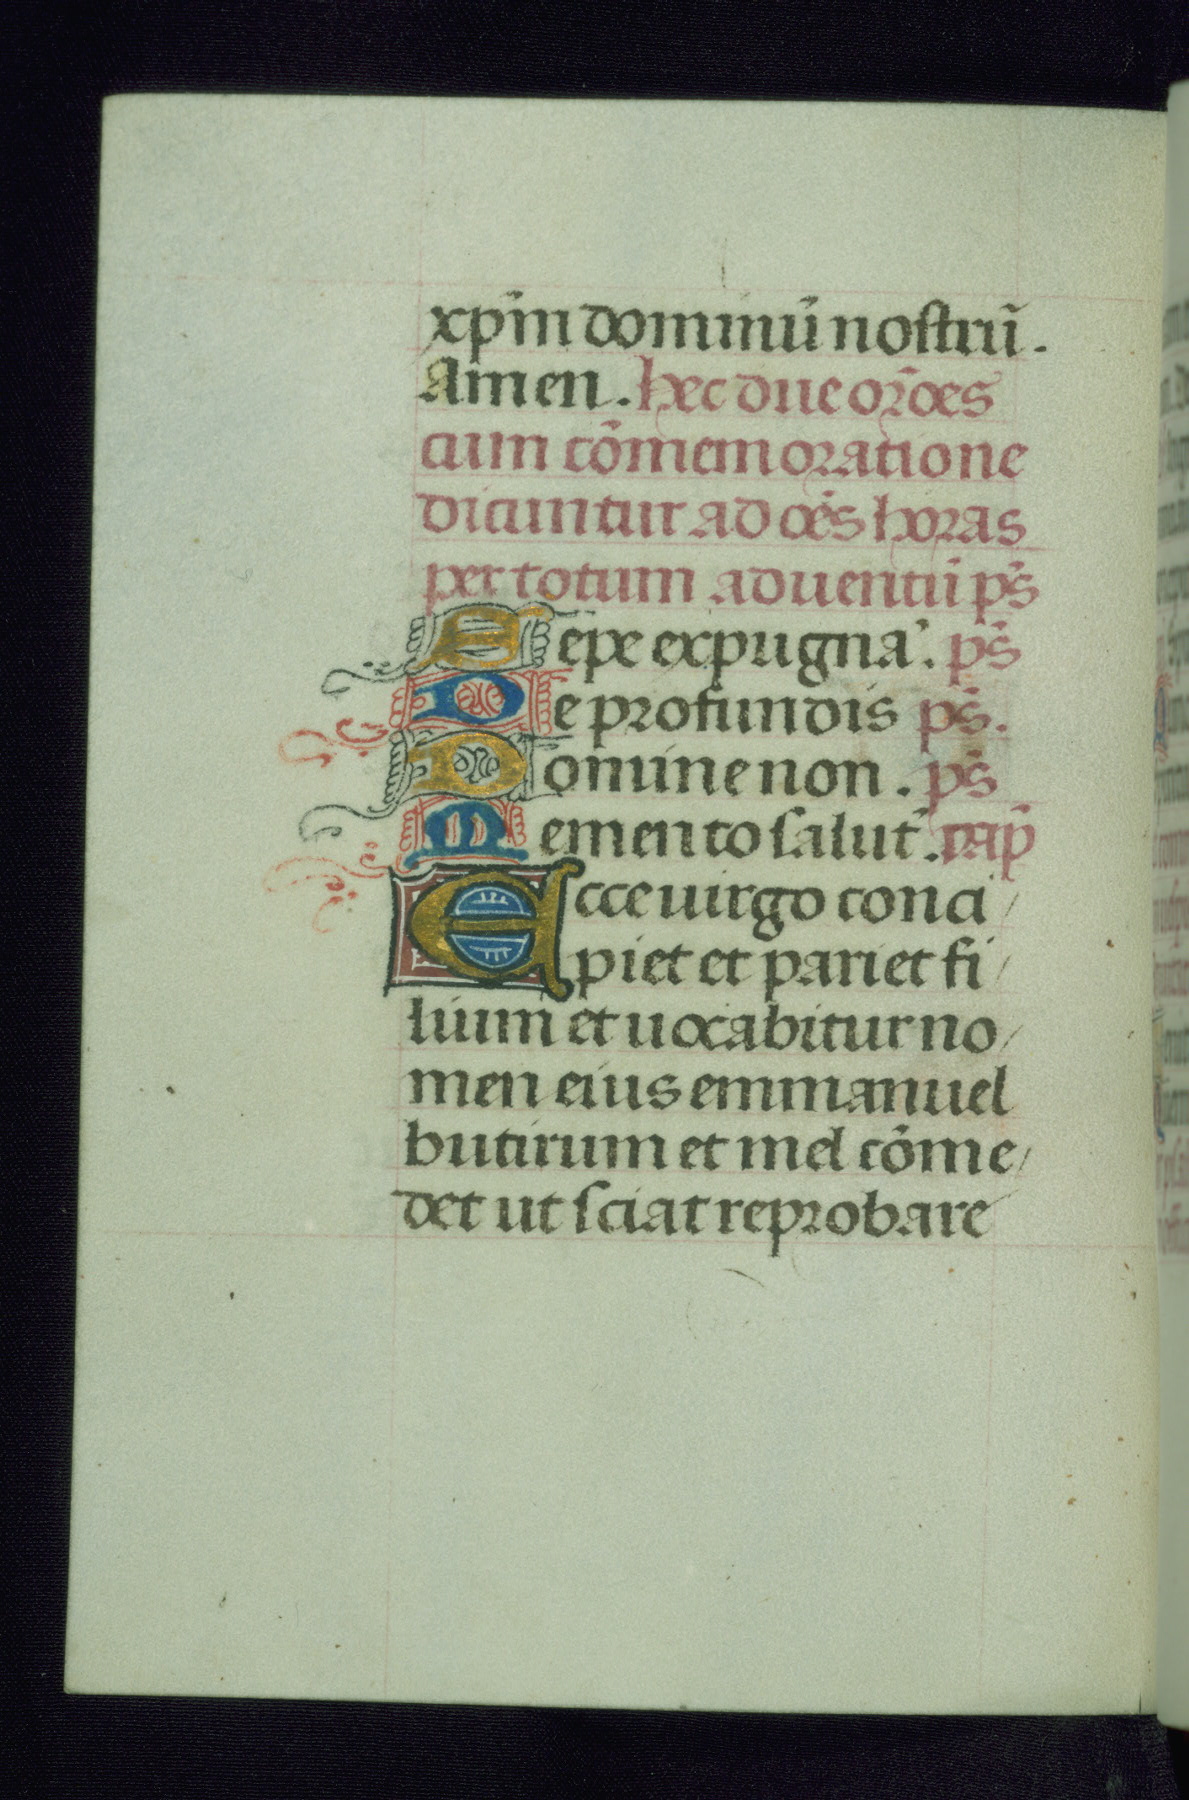 xp̃m dominũ nostrũ.
Amen. hec due or̃oes
cum cõmemoratione
dicuntur ad oẽs horas
per totum aduentũ ps̃
Sepe expugna'. ps̃
De profundis ps̃.
Domine non. ps̃
Memento salut'. cap̃
Ecce uirgo conci/
piet et pariet fi/
lium et uocabitur no/
men eius emmanuel
butirum et mel cõme/
det ut sciat reprobare